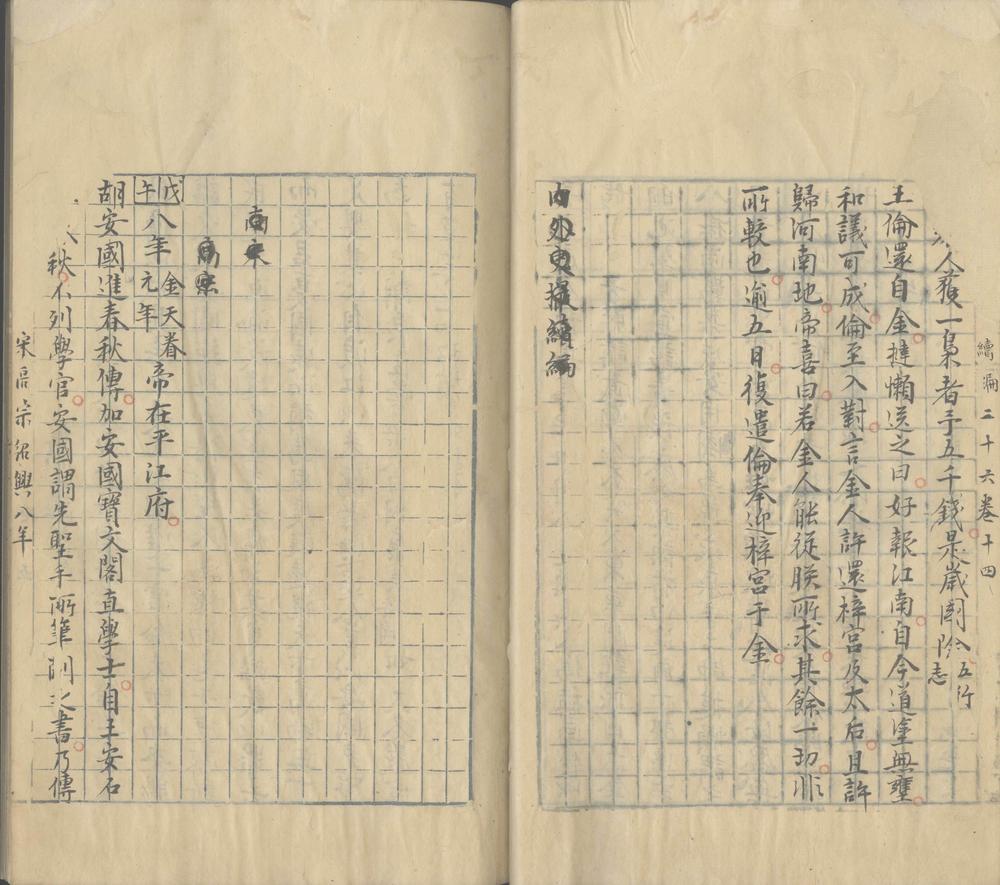 續編二十六卷十四
人獲一梟者予五千錢是歲閩險五行志
王倫還自金撻懶送之曰好報江南自今道塗無壅
和議可成倫至入對言金人許還梓宮及太后且許
歸河南地帝喜曰若金人能從朕所求其餘一切非
所較也逾五日復遣倫奉迎梓宮于金
內外史攟續編
南宋
高宗
戊午八年金天眷元年帝在平江府
胡安國進春秋傳加安國寶文閣直學士自王安石
秋不列學官安國謂先聖手所筆削之書乃傳
宋高宗紹興八年